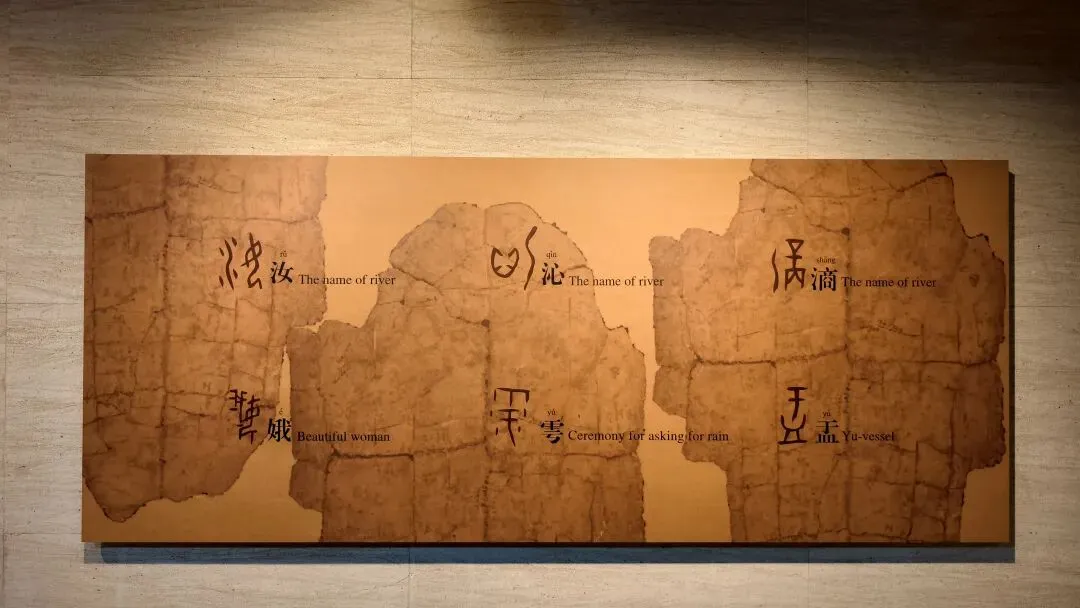 rǔ
汝 The name of river
qìn
沁 The name of river
shāng
滴 The name of river
é
娥 Beautiful woman
yú
雩 Ceremony for asking for rain
yú
盂 Yu-vessel